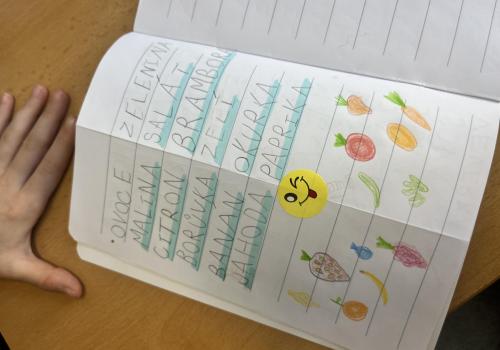 OVOCE ZELENINA
MALINA SALÁT
CITRON BRAMBOR
BORŮVKA ZELÍ
BANÁN OKURKA
JAHODA PAPRIKA